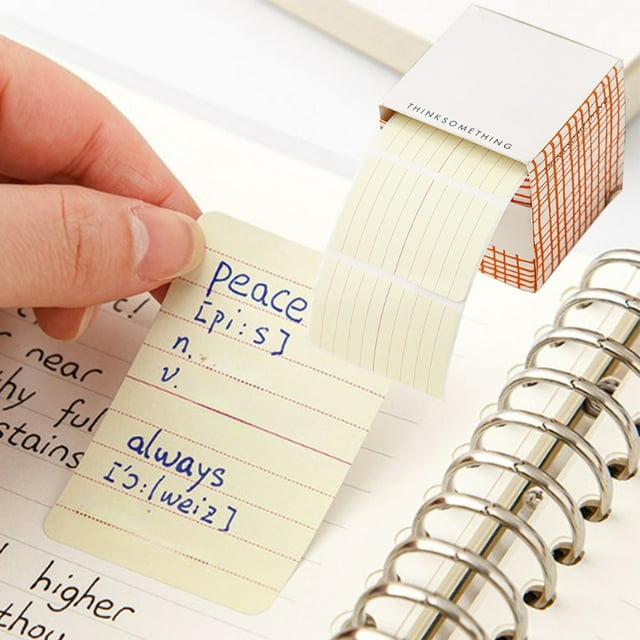 THINKSOMETHING
peace
[pi:s]
n.
v.
always
['ɔ:lweiz]
near
stains
higher